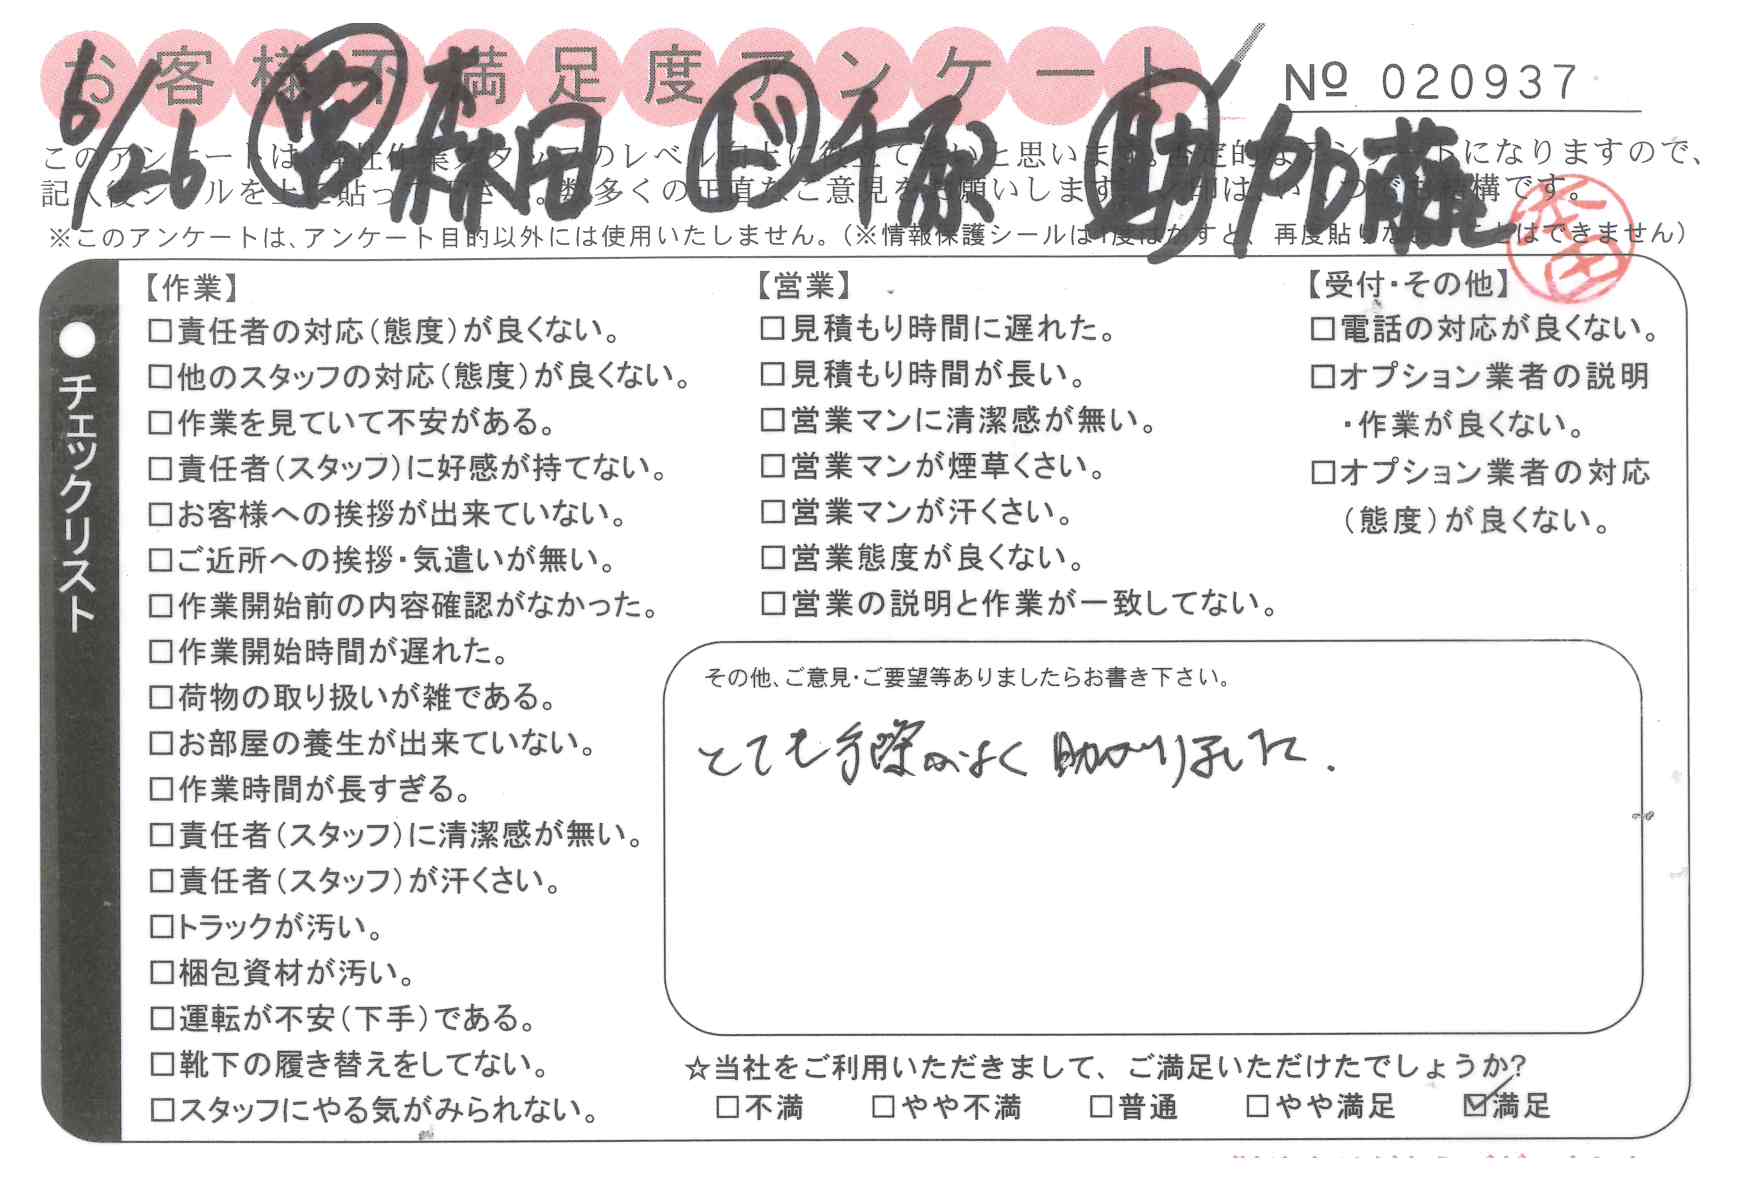 お客様不満足度アンケート
№ 020937
6/26 営 森田 ド 千原 助 加藤
このアンケートは、弊社作業スタッフのレベル向上に役立てたいと思います。否定的なアンケートになりますので、
記入後シールを上に貼って下さい。数多くの正直なご意見をお願いします。レ印は、いくつでも結構です。
※このアンケートは、アンケート目的以外には使用いたしません。(※情報保護シールは1度はがすと、再度貼りなおすことはできません)
チェックリスト
【作業】
□責任者の対応(態度)が良くない。
□他のスタッフの対応(態度)が良くない。
□作業を見ていて不安がある。
□責任者(スタッフ)に好感が持てない。
□お客様への挨拶が出来ていない。
□ご近所への挨拶・気遣いが無い。
□作業開始前の内容確認がなかった。
□作業開始時間が遅れた。
□荷物の取り扱いが雑である。
□お部屋の養生が出来ていない。
□作業時間が長すぎる。
□責任者(スタッフ)に清潔感が無い。
□責任者(スタッフ)が汗くさい。
□トラックが汚い。
□梱包資材が汚い。
□運転が不安(下手)である。
□靴下の履き替えをしてない。
□スタッフにやる気がみられない。
【営業】
□見積もり時間に遅れた。
□見積もり時間が長い。
□営業マンに清潔感が無い。
□営業マンが煙草くさい。
□営業マンが汗くさい。
□営業態度が良くない。
□営業の説明と作業が一致してない。
【受付・その他】
□電話の対応が良くない。
□オプション業者の説明
・作業が良くない。
□オプション業者の対応
(態度)が良くない。
その他、ご意見・ご要望等ありましたらお書き下さい。
とても手際がよく助かりました.
☆当社をご利用いただきまして、ご満足いただけたでしょうか?
□不満 □やや不満 □普通 □やや満足 ☑満足